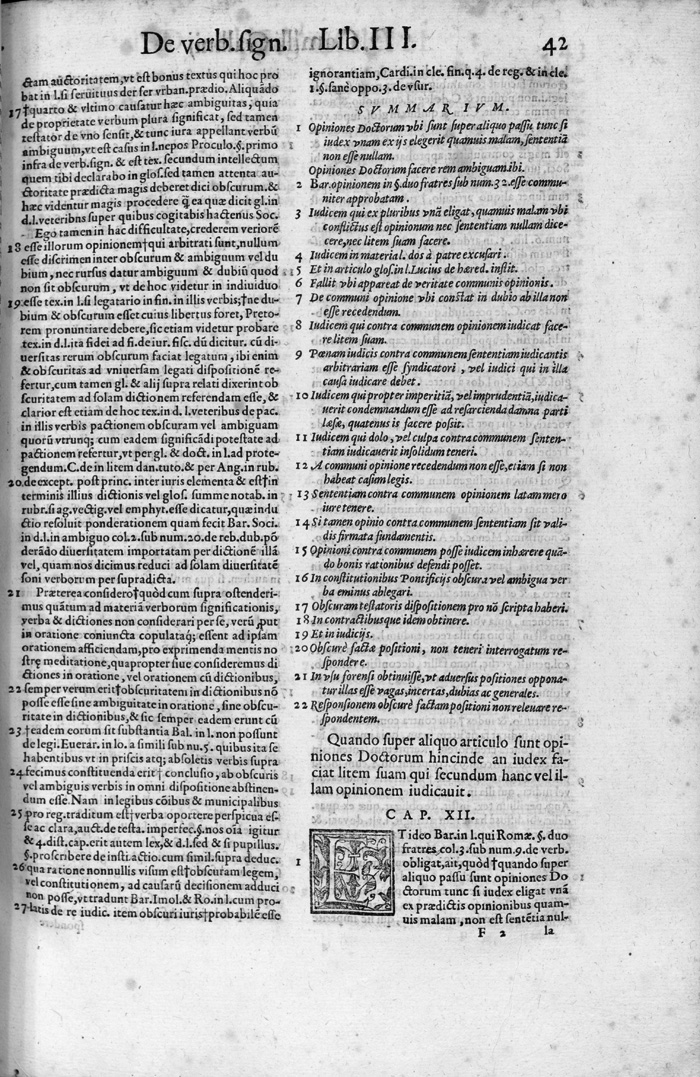 De verb. sign. Lib. III. 42
ctam auctoritatem, vt est bonus textus qui hoc pro
bat in l. si seruituus der ser vrban. prædio. Aliquãdo
17 †quarto & vltimo causatur hæc ambiguitas, quia
de proprietate verbum plura significat, sed tamen
testator de vno sensit, & tunc iura appellant verbũ
ambiguum, vt est casus in l. nepos Proculo. §. primo
infra de verb. sign. & est tex. secundum intellectum
quem tibi declarabo in glos. sed tamen attenta au-
ctoritate prædicta magis deberet dici obscurum. &
hæc videntur magis procedere q̃ ea quæ dicit gl. in
d. l. veteribus super quibus cogitabis hactenus Soc.
Ego tamen in hac difficultate, crederem veriorẽ
18 esse illorum opinionem†qui arbitrati sunt, nullum
esse discrimen inter obscurum & ambiguum vel du
bium, nec rursus datur ambiguum & dubiũ quod
non sit obscurum, vt de hoc videtur in indiuiduo
19 esse tex. in l. si legatario in fin. in illis verbis, †ne du-
bium & obscurum esset cuius libertus foret, Præto-
rem pronuntiare debere, sic etiam videtur probare
tex. in d. l. ita fidei ad fi. de iur. fisc. dũ dicitur. cũ di-
uersitas rerum obscurum faciat legatum, ibi enim
& obscuritas ad vniuersam legati dispositionẽ re-
fertur, cum tamen gl. & alij supra relati dixerint ob
scuritatem ad solam dictionem referendam esse, &
clarior est etiam de hoc tex. in d. l. veteribus de pac.
in illis verbis pactionem obscuram vel ambiguam
quorũ vtrunq; cum eadem significãdi potestate ad
pactionem refertur, vt per gl. & doct. in l. ad prote-
gendum. C. de in litem dan. tuto. & per Ang. in rub.
20 de except. post princ. inter iuris elementa & est†in
terminis illius dictionis vel glos. summe notab. in
rubr. si ag. vectig. vel emphyt. esse dicatur, quæ indu
ctio resoluit ponderationem quam fecit Bar. Soci.
in d. l. in ambiguo col. 2. sub num. 20. de reb. dub. põ
derãdo diuersitatem importatam per dictionẽ illã
vel, quam nos dicimus reduci ad solam diuersitatẽ
soni verborum per supradicta.
21 Præterea considero†quòd cum supra ostenderi-
mus quãtum ad materiã verborum significationis,
verba & dictiones non considerari per se, verũ put
in oratione coniuncta copulataq; essent ad ipsam
orationem afficiendam, pro exprimenda mentis no
stræ meditatione, quapropter siue consideremus di
ctiones in oratione, vel orationem cũ dictionibus,
22 semper verum erit†obscuritatem in dictionibus nõ
posse esse sine ambiguitate in oratione, sine obscu-
ritate in dictionibus, & sic semper eadem erunt cũ
23 †eadem eorum sit substantia Bal. in l. non possunt
de legi. Euerar. in lo. a simili sub nu. 5. quibus ita se
habentibus vt in priscis atq; absoletis verbis supra
24 fecimus constituenda erit † conclusio, ab obscuris
vel ambiguis verbis in omni dispositione abstinen-
dum esse. Nam in legibus cõibus & municipalibus
25 pro reg. traditum est†verba oportere perspicua es-
se ac clara, auct. de testa. imperfec. §. nos oĩa igitur
& 4. dist. cap. erit autem lex, & d. l. sed & si pupillus.
§. proscribere de insti. actio. cum simil. supra deduc.
26 qua ratione nonnullis visum est†obscuram legem,
vel constitutionem, ad causarũ decisionem adduci
non posse, vt tradunt Bar. Imol. & Ro. in l. cum pro-
27 latis de re iudic. item obscuri iuris†probabilẽ esse
ignorantiam, Cardi. in cle. fin. q. 4. de reg. & in cle.
1. §. sanè oppo. 3. de vsur.
SVMMARIVM.
1 Opiniones Doctorum vbi sunt super aliquo passu tunc si
iudex vnam ex ijs elegerit quamuis malam, sententiã
non esse nullam.
Opiniones Doctorum facere rem ambiguam. ibi.
2 Bar. opinionem in §. duo fratres sub num. 32. esse commu-
niter approbatam.
3 Iudicem qui ex pluribus vnã eligat, quamuis malam vbi
conflictus est opinionum nec sententiam nullam dice-
cere, nec litem suam facere.
4 Iudicem in material. dos à patre excusari.
5 Et in articulo glos. in l. Lucius de hæred. instit.
6 Fallit vbi appareat de veritate communis opinionis.
7 De communi opinione vbi constat in dubio ab illa non
esse recedendum.
8 Iudicem qui contra communem opinionem iudicat face-
re litem suam.
9 Pœnam iudicis contra communem sententiam iudicantis
arbitrariam esse syndicatori, vel iudici qui in illa
causa iudicare debet.
10 Iudicem qui propter imperitiã, vel imprudentiã, iudica-
uerit condemnandum esse ad resarcienda damna parti
læsæ, quatenus is facere possit.
11 Iudicem qui dolo, vel culpa contra communem senten-
tiam iudicauerit insolidum teneri.
12 A communi opinione recedendum non esse, etiam si non
habeat casum legis.
13 Sententiam contra communem opinionem latam mero
iure tenere.
14 Si tamen opinio contra communem sententiam sit vali-
dis firmata fundamentis.
15 Opinioni contra communem posse iudicem inhærere quã-
do bonis rationibus defendi posset.
16 In constitutionibus Pontificijs obscura vel ambigua ver
ba eminus ablegari.
17 Obscuram testatoris dispositionem pro nõ scripta haberi.
18 In contractibusque idem obtinere.
19 Et in iudicijs.
20 Obscurè factæ positioni, non teneri interrogatum re-
spondere.
21 In vsu forensi obtinuisse, vt aduersus positiones oppona-
tur illas esse vagas, incertas, dubias ac generales.
22 Responsionem obscurè factam positioni non releuare re-
spondentem.
Quando super aliquo articulo sunt opi-
niones Doctorum hincinde an iudex fa-
ciat litem suam qui secundum hanc vel il-
lam opinionem iudicauit.
CAP. XII.
ET ideo Bar. in l. qui Romæ. §. duo
fratres col. 3. sub num. 9. de verb.
1 obligat, ait, quòd †quando super
aliquo passu sunt opiniones Do
ctorum tunc si iudex eligat vnã
ex prædictis opinionibus quam-
uis malam, non est sentẽtia nul-
F 2 la